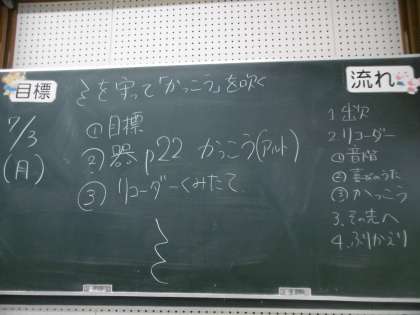 目標
を守って「かっこう」を吹く
7/3
(月)
①目標
②器 p22 かっこう(アルト)
③リコーダーくみたて
流れ
1.出欠
2.リコーダー
①音階
②喜びのうた
③かっこう
3.その先へ
4.ふりかえり